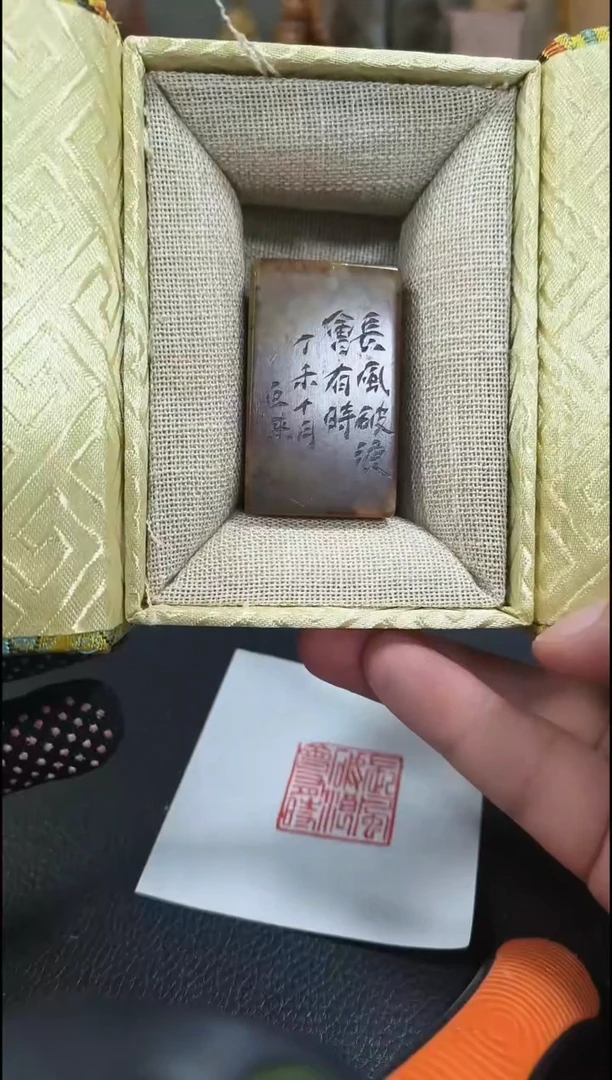 長風破浪
會有時
丁未十月
巨來
長風
破浪
會有時